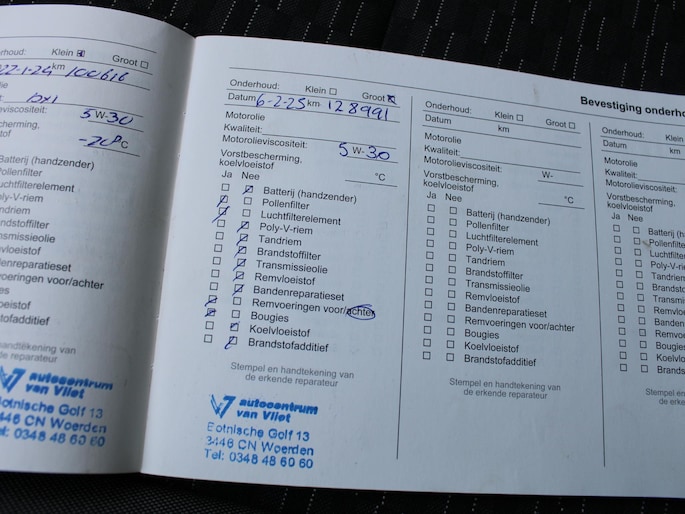 Onderhoud: Klein Groot
22-1-24 km 100616
5 W-30
-20 °C
Batterij (handzender)
Pollenfilter
Luchtfilterelement
Poly-V-riem
Tandriem
Brandstoffilter
Transmissieolie
Remvloeistof
Bandenreparatieset
Remvoeringen voor/achter
Bougies
Koelvloeistof
Brandstofadditief
handtekening van
de reparateur
autocentrum
van Vliet
Botnische Golf 13
3446 CN Woerden
Tel: 0348 48 60 60
Onderhoud: Klein Groot
Datum 6-2-25 km 128991
Motorolie
Kwaliteit:
Motorolieviscositeit: 5 W-30
Vorstbescherming,
koelvloeistof °C
Ja Nee
Batterij (handzender)
Pollenfilter
Luchtfilterelement
Poly-V-riem
Tandriem
Brandstoffilter
Transmissieolie
Remvloeistof
Bandenreparatieset
Remvoeringen voor/achter
Bougies
Koelvloeistof
Brandstofadditief
Stempel en handtekening van
de erkende reparateur
autocentrum
van Vliet
Botnische Golf 13
3446 CN Woerden
Tel: 0348 48 60 60
Bevestiging onderho
Onderhoud: Klein Groot
Datum km
Motorolie
Kwaliteit:
Motorolieviscositeit: W-
Vorstbescherming,
koelvloeistof °C
Ja Nee
Batterij (handzender)
Pollenfilter
Luchtfilterelement
Poly-V-riem
Tandriem
Brandstoffilter
Transmissieolie
Remvloeistof
Bandenreparatieset
Remvoeringen voor/achter
Bougies
Koelvloeistof
Brandstofadditief
Stempel en handtekening van
de erkende reparateur
Onderhoud: Klein
Datum km
Motorolie
Kwaliteit:
Motorolieviscositeit:
Vorstbescherming,
koelvloeistof
Ja Nee
Batterij (ha
Pollenfilter
Luchtfilterel
Poly-V-riem
Tandriem
Brandstoffil
Transmissi
Remvloeist
Bandenrep
Remvoerin
Bougies
Koelvloeis
Brandstofa
Stempel en
de erke